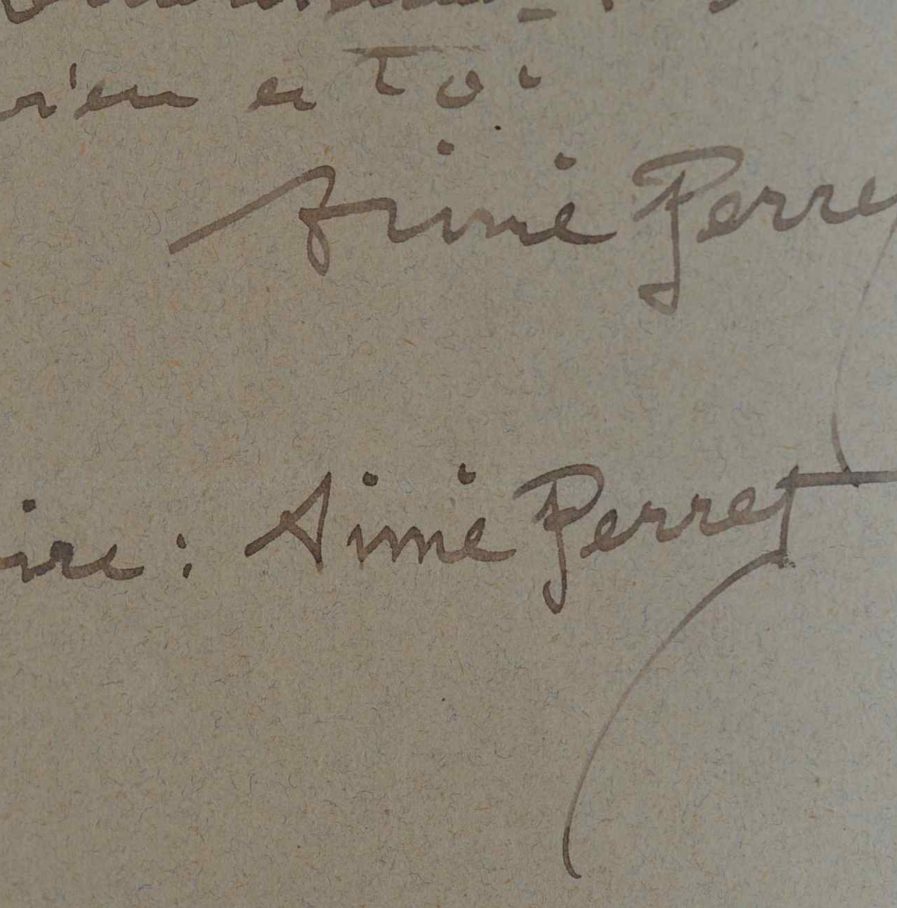 en à toi
Aimé Perre
ire : Aimé Perret